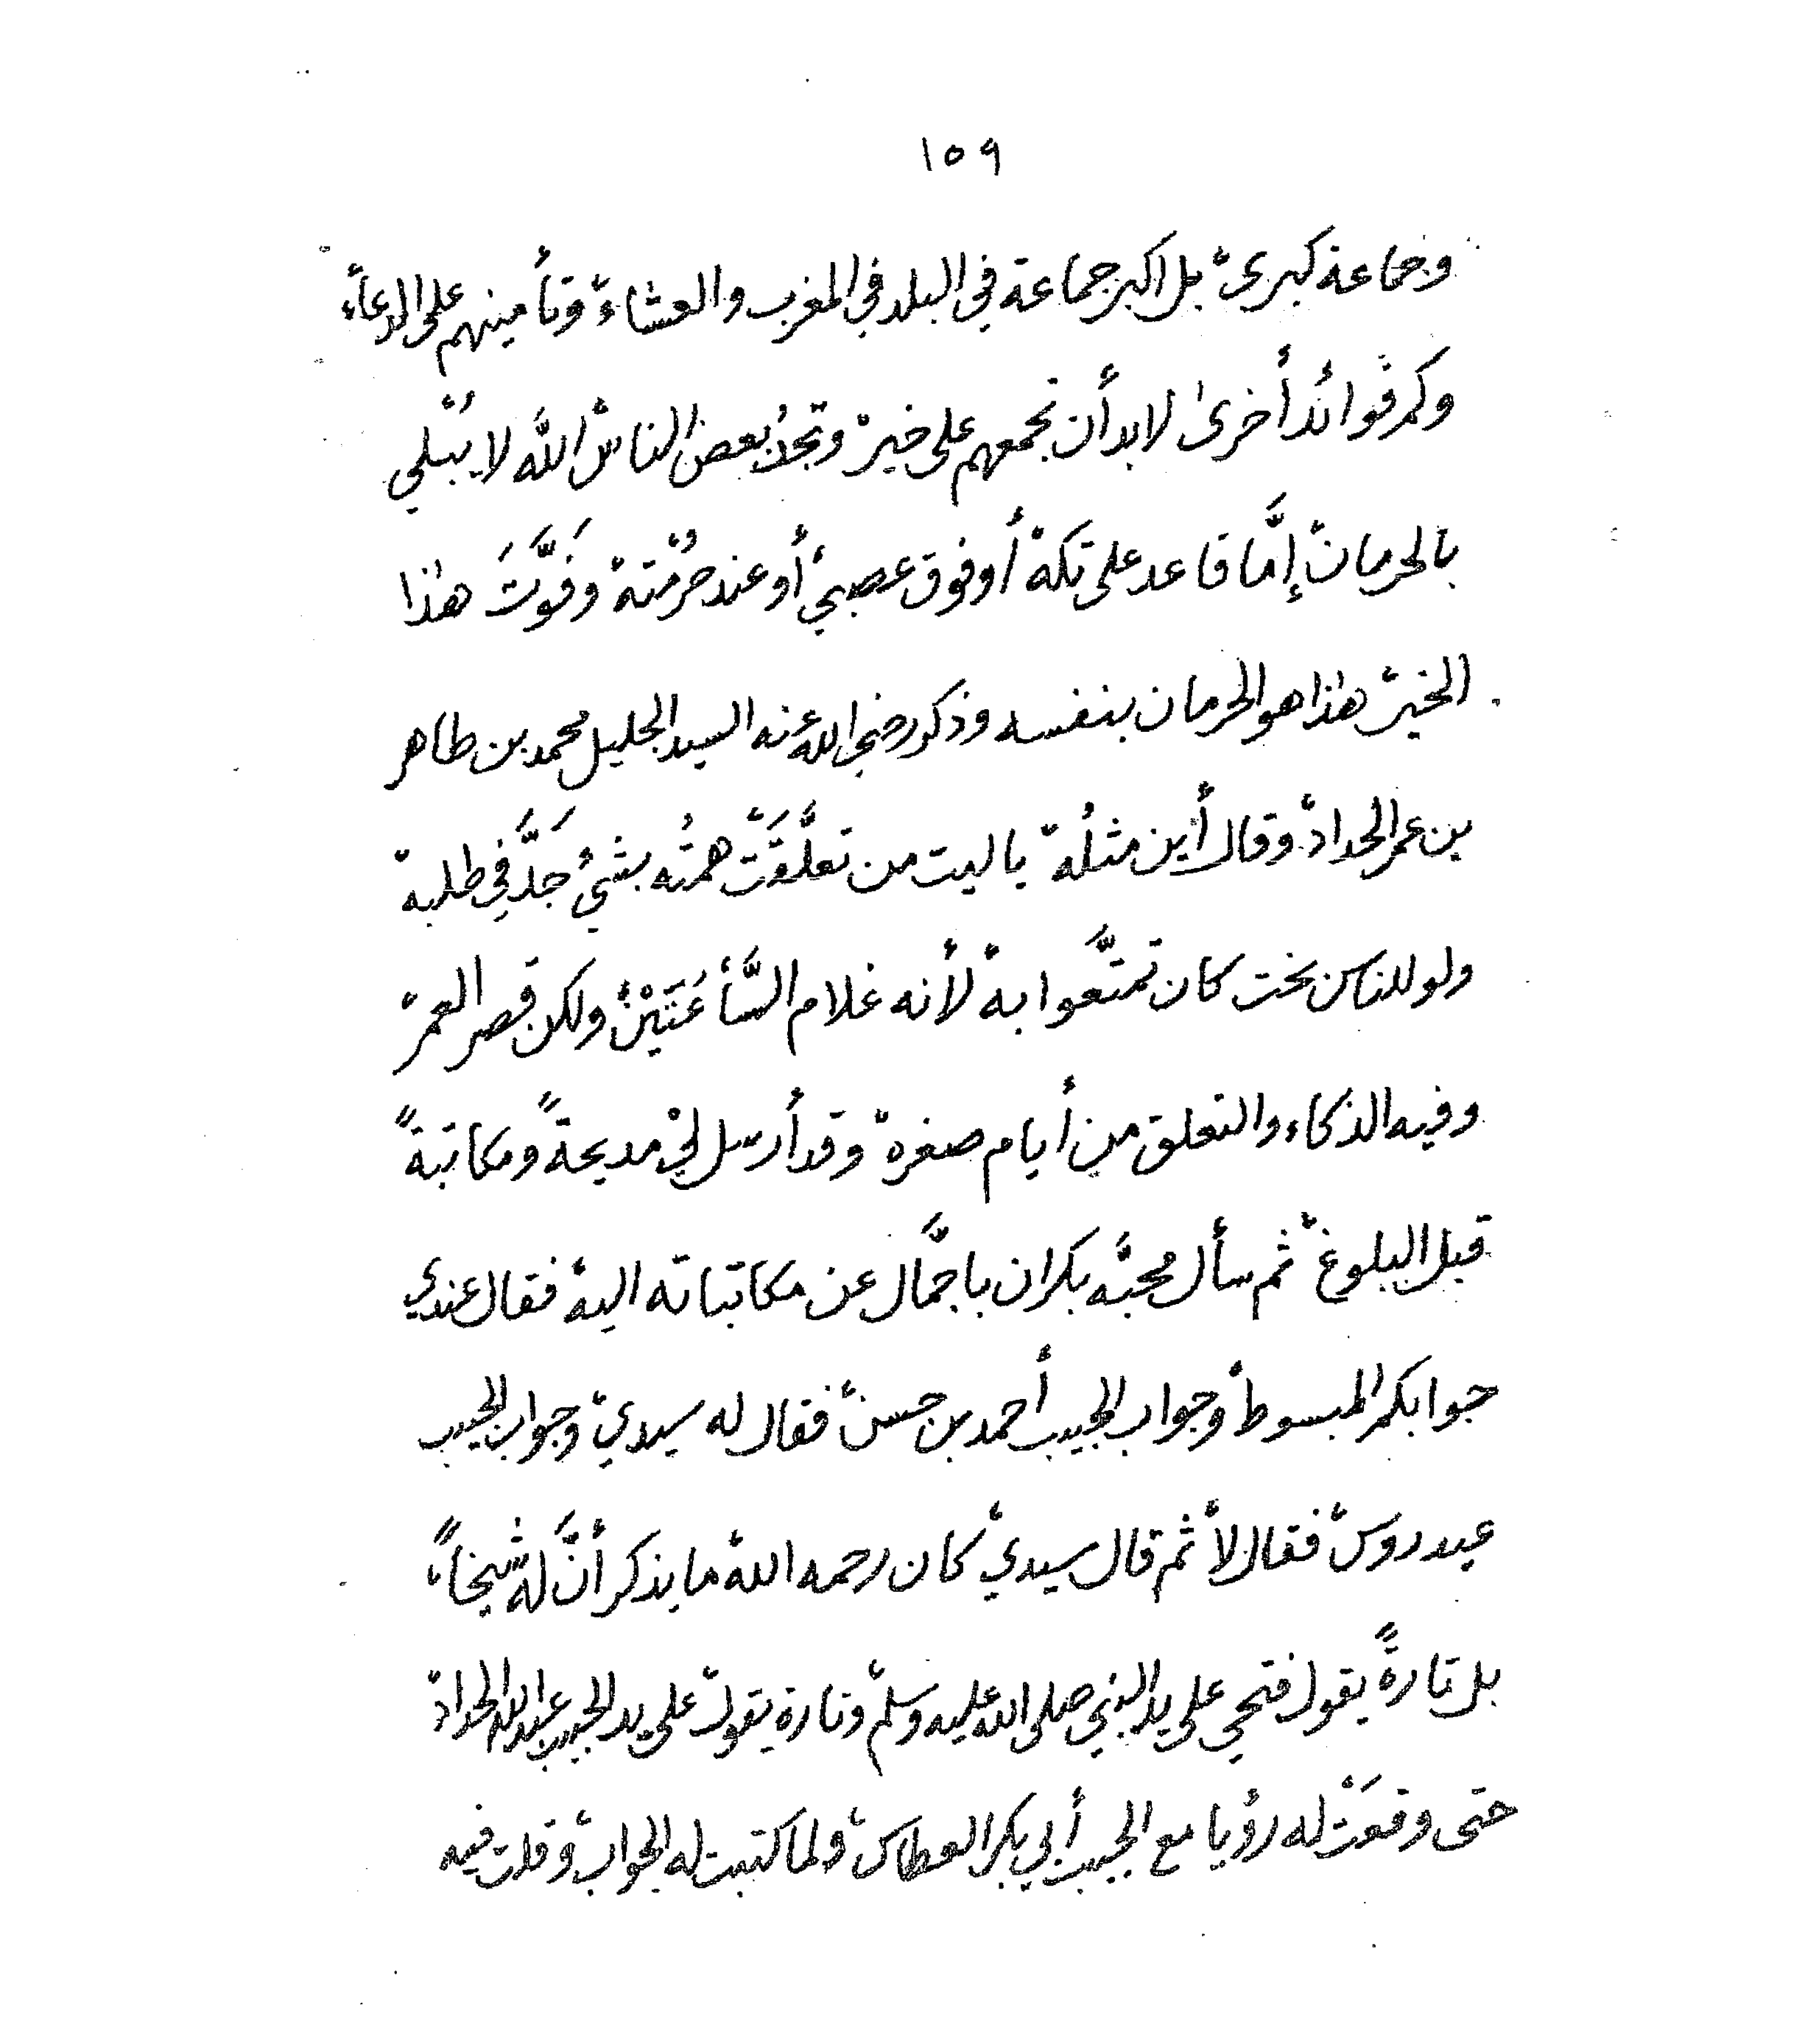 ١٥٩
وجماعة كبرى، بل اكبر جماعة في البلد في المغرب والعشاء، وتأمينهم على الدعاء،
وكم فوائد أخرى لابد أن تجمعهم على خير، وتجد بعض الناس، الله لا يُبْلي
بالحرمان، إمَّا قاعد على تكة، أو فوق عصبي، أو عند حُرْمَته، وفَوَّتَ هذا
الخير، هذا هو الحرمان بنفسه وذكر رضي الله عنه السيد الجليل محمد بن طاهر
بن عمر الحداد، وقال أين مثلُه، يا ليت من تعلَّقَتْ همتُه بشيءٍ جَدَّ في طلبه،
ولو للناس بخت كان تمتَّعوا به، لأنه غلام السَّاعَتَيْنْ، ولكن قصر العمر،
وفيه الذكاء والتعلق من أيام صغره، وقد أرسل لي مديحةً ومكاتبةً
قبل البلوغ، ثم سأل محبَّه بكران باجمَّال عن مكاتباته اليه، فقال عندي
جوابكم المبسوط، وجواب الحبيب أحمد بن حسن، فقال له سيدي، وجواب الحبيب
عيدروس، فقال لا، ثم قال سيدي، كان رحمه الله، ما يذكر أنَّ له شيخاً،
بل تارةً يقول فتحي على يد النبي صلى الله عليه وسلم، وتارة يقول، على يد الحبيب عبدالله الحداد،
حتى وقعَتْ له رؤيا مع الحبيب أبي بكر العطاس، ولما كتبت له الجواب، وقلت فيه